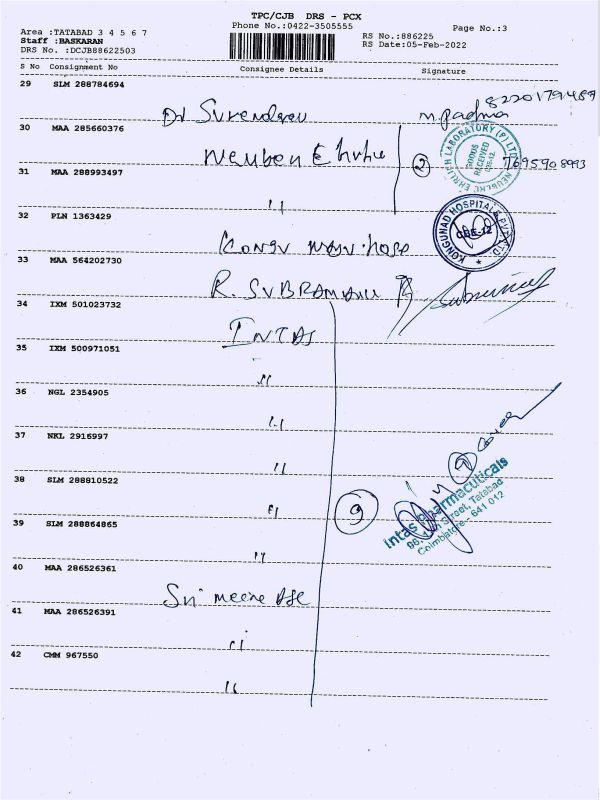 TPC/CJB DRS - PCX
Phone No.:0422-3505555
Page No.:3
Area :TATABAD 3 4 5 6 7
Staff :BASKARAN
DRS No. :DCJB88622503
RS No.:886225
RS Date:05-Feb-2022
S No Consignment No Consignee Details Signature
29 SLM 288784694
Dr Surendran
8220179489
30 MAA 285660376
2
7695908993
NEUBERG EHRLICH LABORATORY (P) LTD
GOODS RECEIVED
CBE-12
31 MAA 288993497
"
32 PLN 1363429
KONGUNAD HOSPITALS PVT LTD
CBE-12
33 MAA 564202730
34 IXM 501023732
INTAS
35 IXM 500971051
"
36 NGL 2354905
"
37 NKL 2916997
"
38 SLM 288810522
"
9
Intas Pharmacuticals
Street, Tatabad
Coimbatore - 641 012
39 SLM 288864865
"
40 MAA 286526361
Sri
41 MAA 286526391
"
42 CMM 967550
"